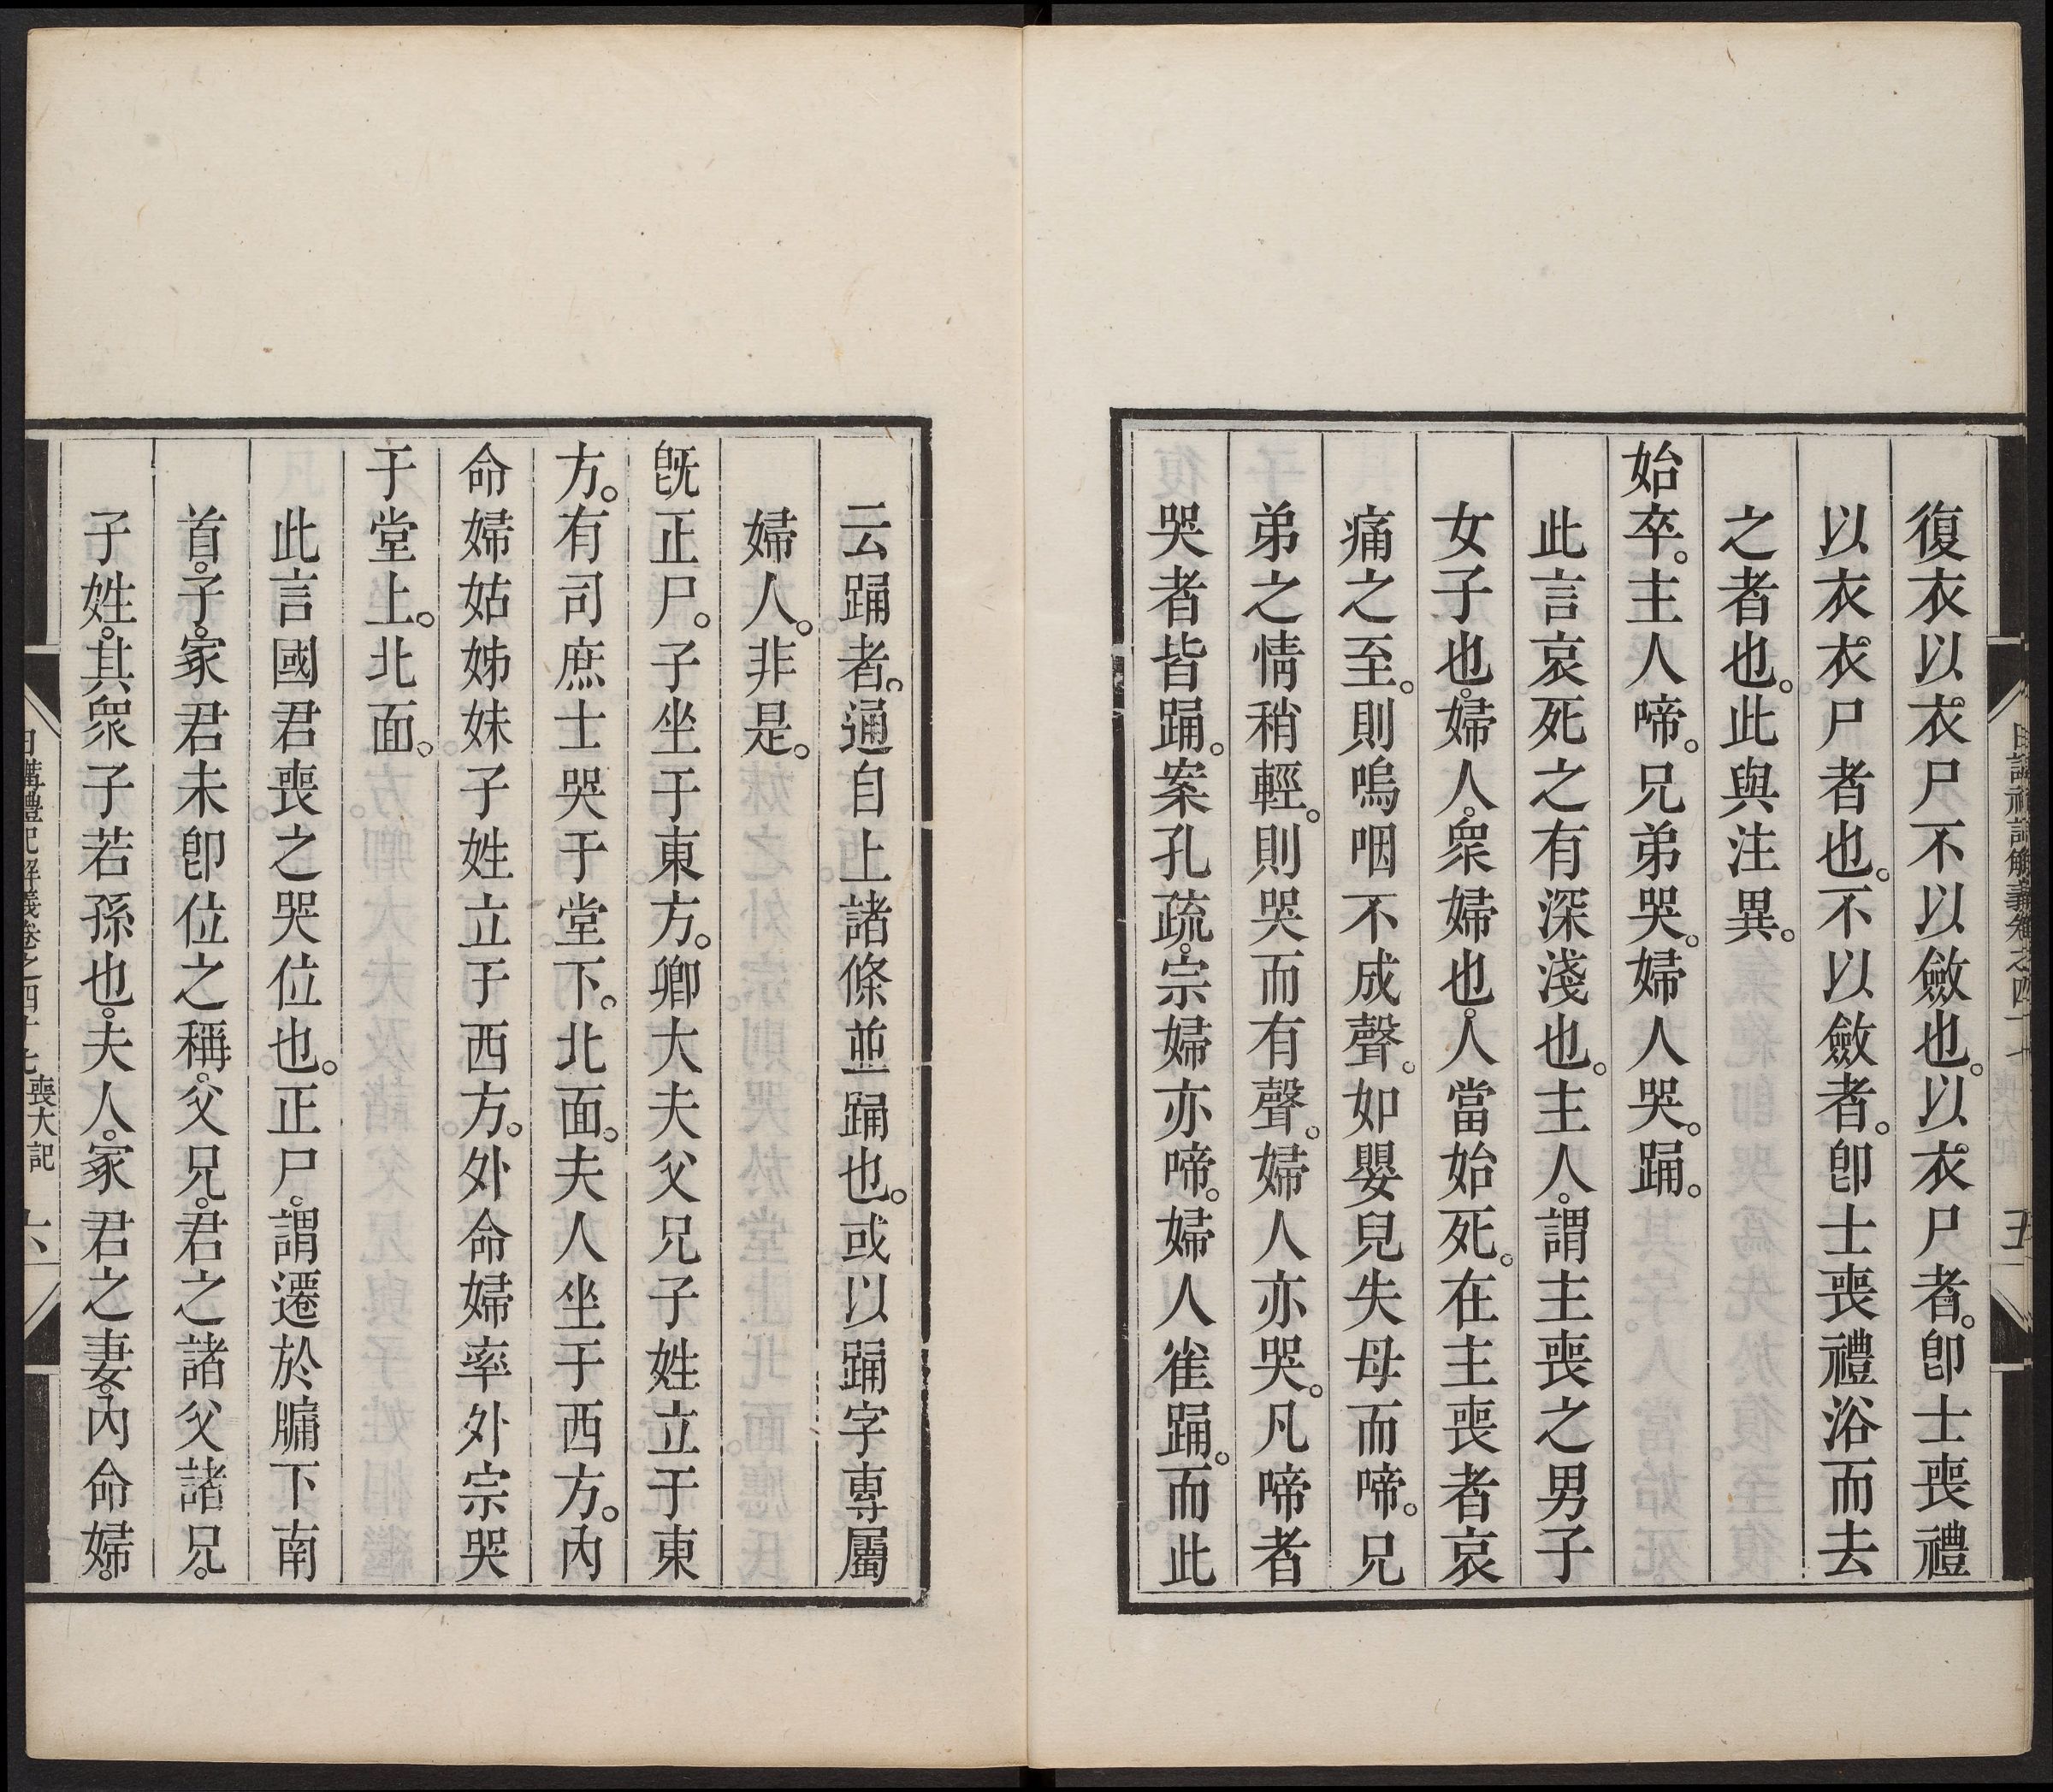 復衣以衣尸不以斂也。以衣尸者。卽士喪禮
以衣衣尸者也。不以斂者。卽士喪禮浴而去
之者也。此與注異。
始卒。主人啼。兄弟哭。婦人哭。踊。
此言哀死之有深淺也。主人。謂主喪之男子
女子也。婦人。衆婦也。人當始死。在主喪者哀
痛之至。則嗚咽不成聲。如嬰兒失母而啼。兄
弟之情稍輕。則哭而有聲。婦人亦哭。凡啼者
哭者皆踊。案孔疏。宗婦亦啼。婦人雀踊。而此
云踊者。通自上諸條並踊也。或以踊字專屬
婦人。非是。
旣正尸。子坐于東方。卿大夫父兄子姓立于東
方。有司庶士哭于堂下。北面。夫人坐于西方。內
命婦姑姊妹子姓立于西方。外命婦率外宗哭
于堂上。北面。
此言國君喪之哭位也。正尸。謂遷於牖下南
首。子。家君未卽位之稱。父兄。君之諸父諸兄。
子姓。其衆子若孫也。夫人。家君之妻。內命婦。
日講禮記解義卷之四十七 喪大記 六